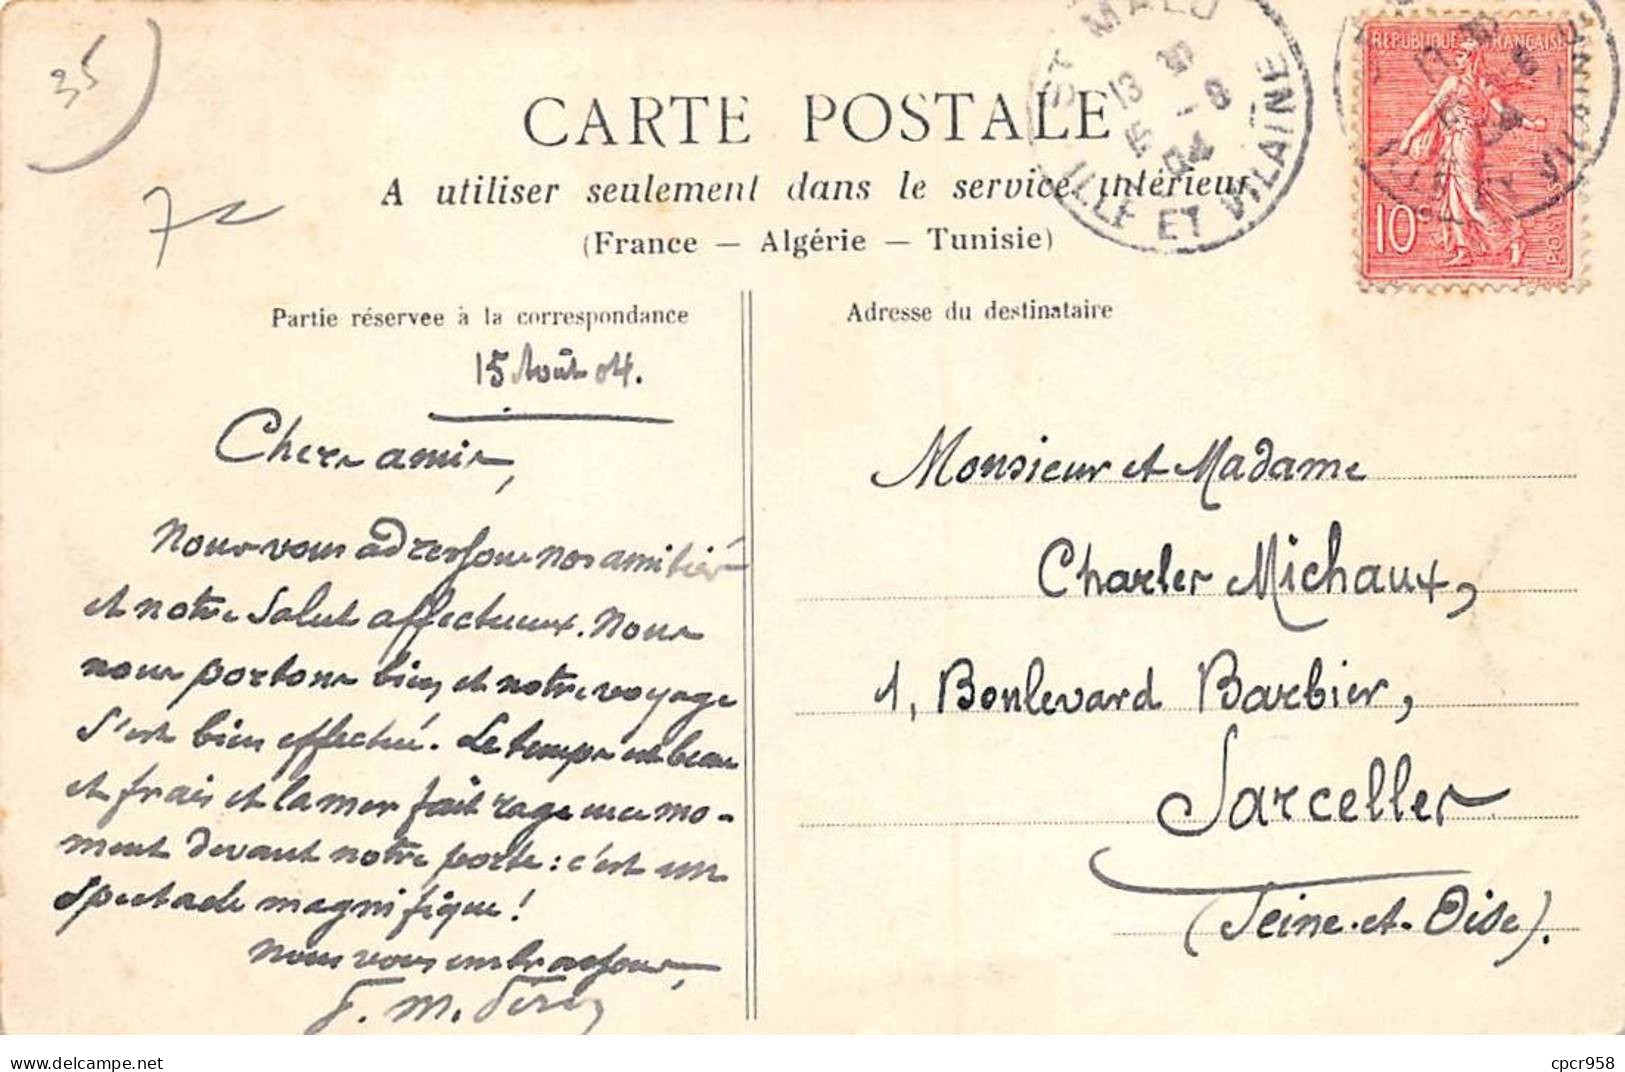 35
ST MALO
13 35
15 - 8
04
ILLE ET VILAINE
REPUBLIQUE FRANÇAISE
10c
POSTES
ILLE ET VILAINE
CARTE POSTALE
A utiliser seulement dans le service intérieur
(France — Algérie — Tunisie)
Partie réservee à la correspondance
15 Août 04.
Chers amis,
Nous vous adressons nos amitiés
et notre salut affectueux. Nous
nous portons bien et notre voyage
s'est bien effectué. Le temps est beau
et frais et la mer fait rage en ce mo-
ment devant notre porte : c'est un
spectacle magnifique !
Nous vous embrassons,
Adresse du destinataire
Monsieur et Madame
Charles Michaux,
1, Boulevard Barbier,
Sarcelles
(Seine-et-Oise).
cpcr958